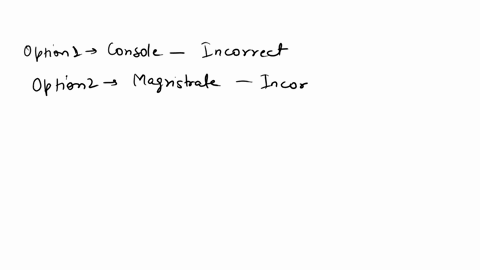 Option1 → Console — Incorrect
Option2 → Magristrate — Incor